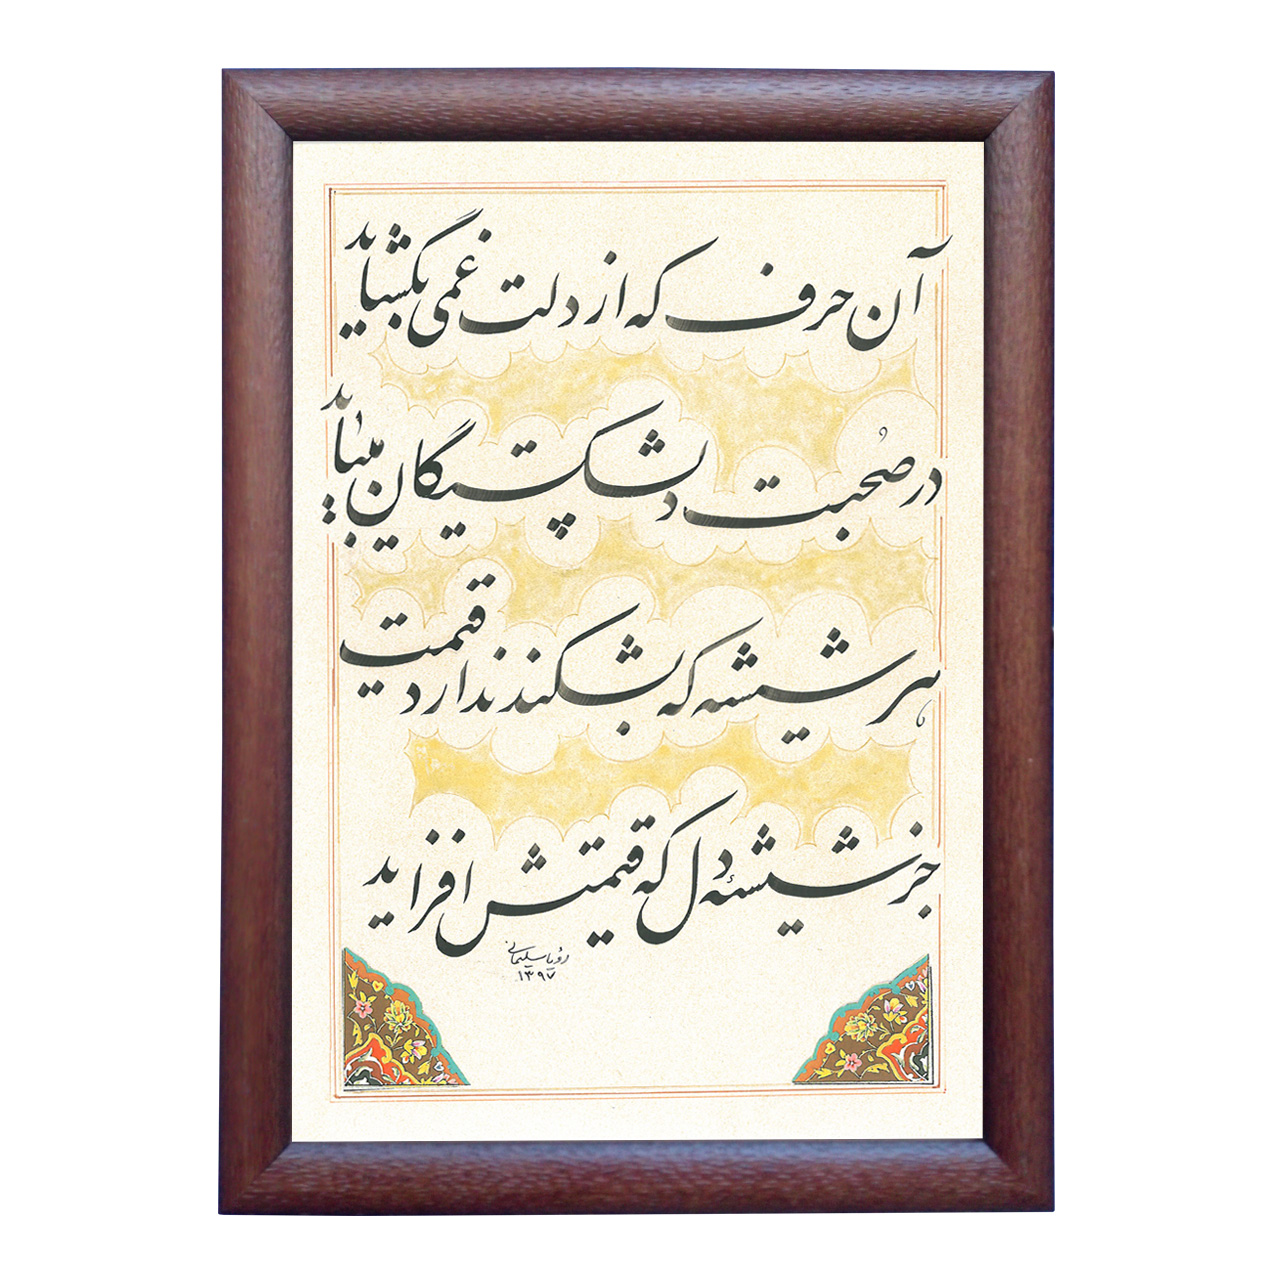 آن حرف که از دلت غمی بگشاید
در صحبت دلشکستگان می‌باید
هر شیشه که بشکند ندارد قیمت
جز شیشهٔ دل که قیمتش افزاید
رؤیا سلیمانی
۱۳۹۷